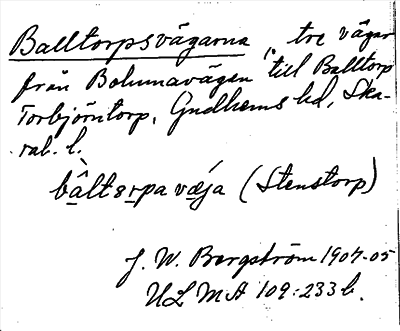 Balltorpsvägarna, "tre vägar
från Bohumavägen till Balltorp"
Torbjörntorp, Gudhems hd, Ska-
rab. l.
bàltsrpa væja (Stenstorp)
J. W. Bergström 1904-05
ULMA 109:233 b.